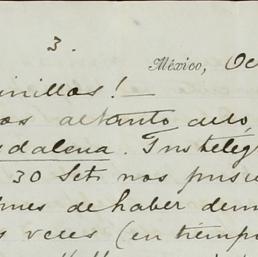 3.
México, Oc
inillas!
os altanto delo
dalena. Sus telég
30 Set. nos pusi
mes de haber dem
s veces (en tiempo